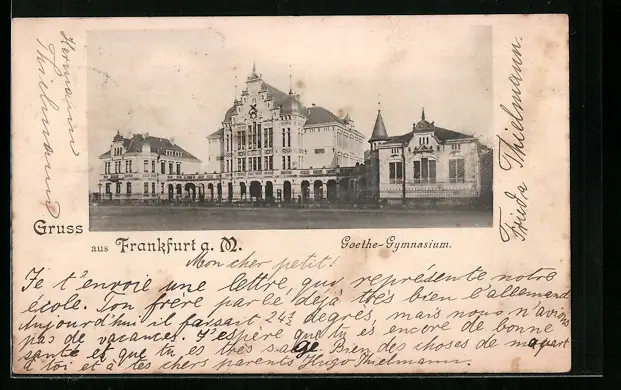 Hermann
Thielmann
Frieda Thielmann.
Gruss
aus Frankfurt a. M.
Goethe-Gymnasium.
Mon cher petit!
Je t'envoie une lettre, qui représente notre
école. Ton frère parle déjà très bien l'allemand
aujourd'hui il faisait 24½ degrés, mais nous n'avions
pas de vacances. J'espère que tu es encore de bonne
santé et que tu es très sage. Bien des choses de ma part
à toi et à tes chers parents Hugo Thielmann.